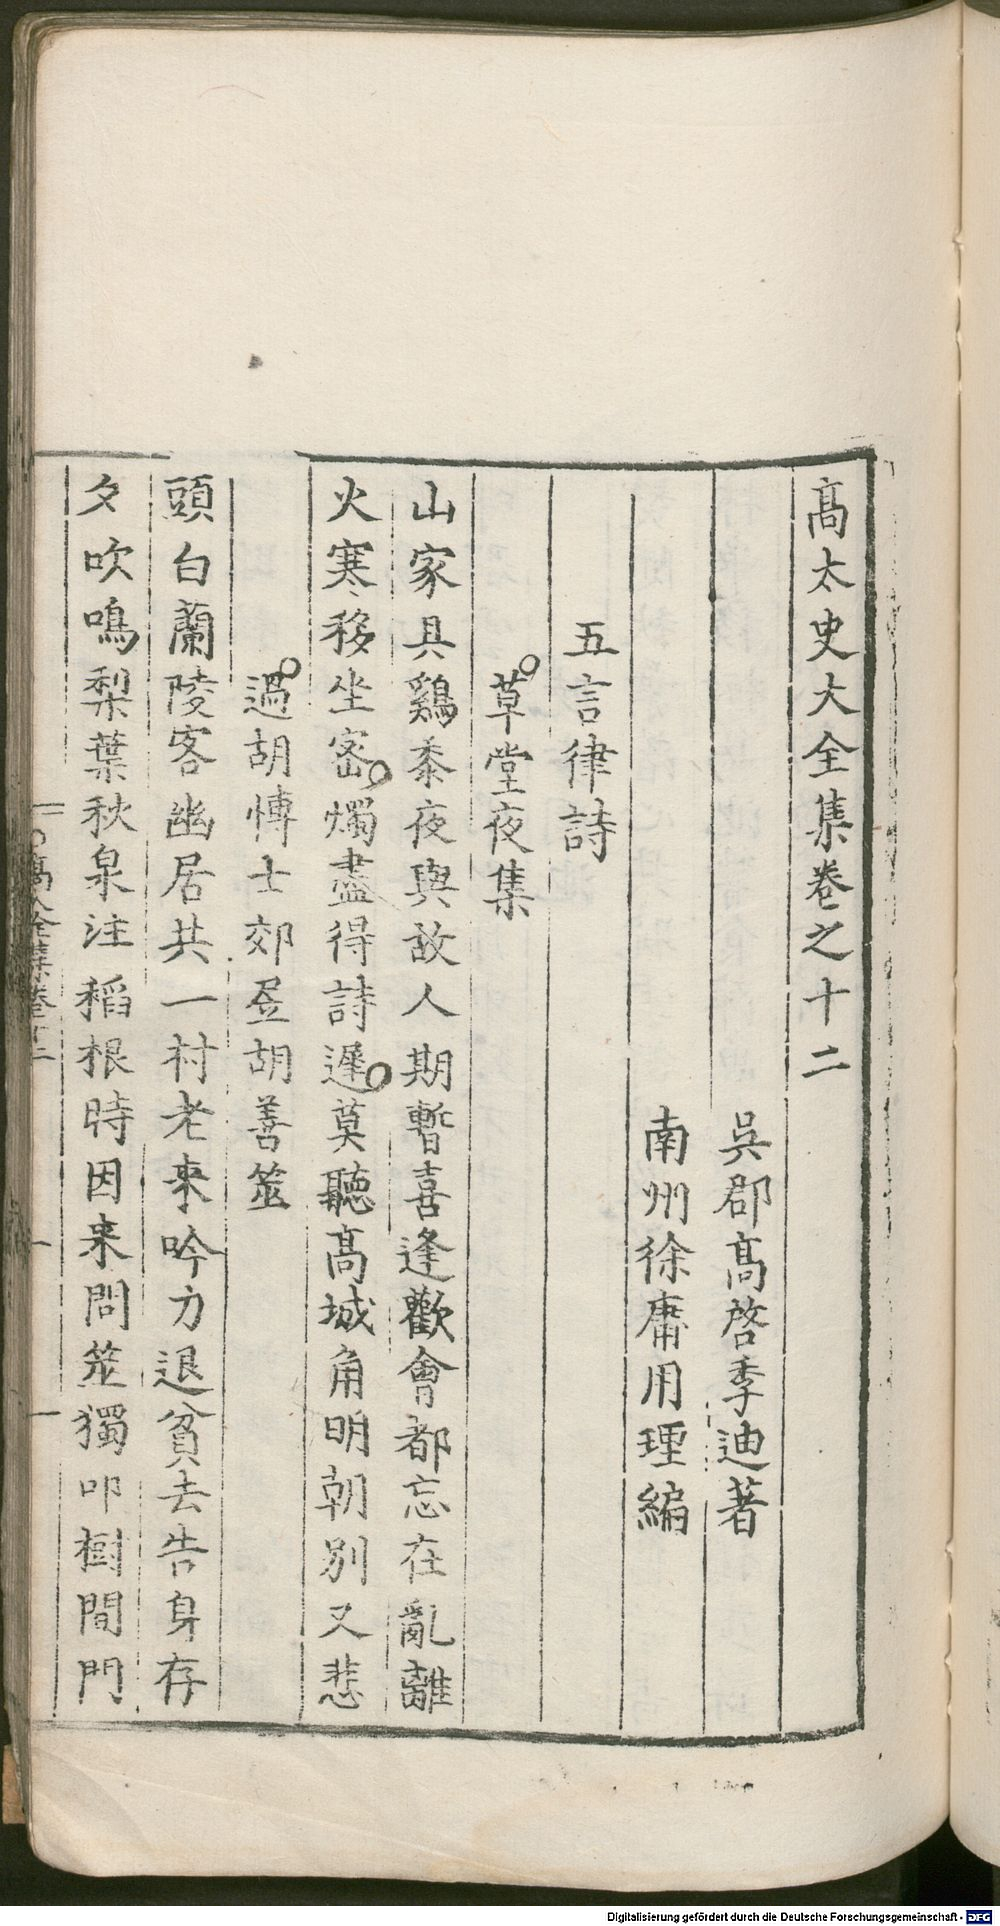 髙太史大全集卷之十二
吳郡髙啓季迪著
南州徐庸用理編
五言律詩
草堂夜集
山家具鷄黍夜與故人期暫喜逢歡會都忘在亂離
火寒移坐密燭盡得詩遲莫聽髙城角明朝別又悲
過胡博士郊居胡善筮
頭白蘭陵客幽居共一村老来吟力退貧去告身存
夕吹鳴梨葉秋泉注稻根時因来問筮獨叩樹間門
髙全集卷十二
Digitalisierung gefördert durch die Deutsche Forschungsgemeinschaft - DFG